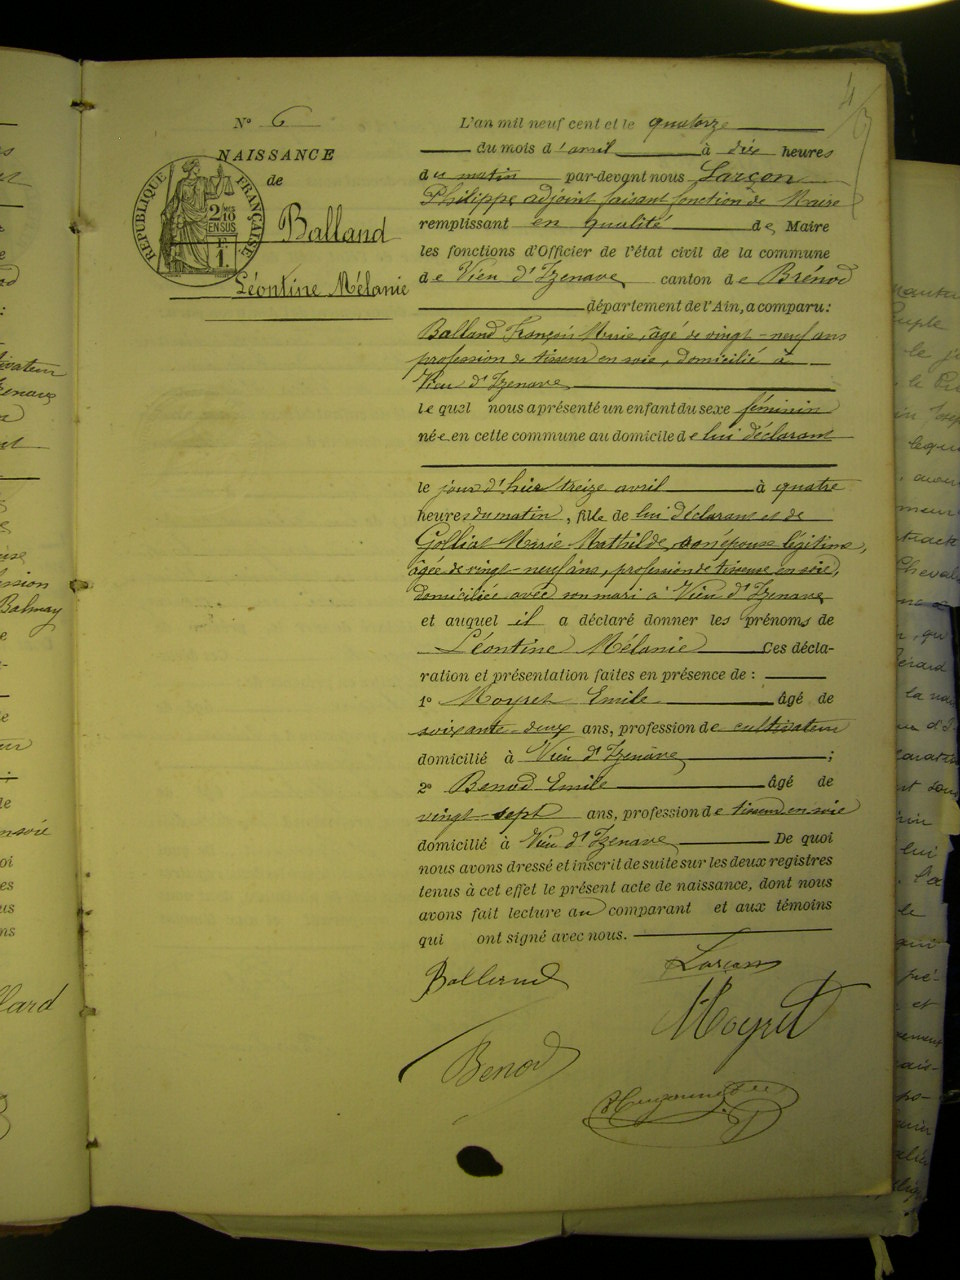 4
N° 6
NAISSANCE
de
RÉPUBLIQUE FRANÇAISE
2/10
EN SUS
F.
1.
Balland
Léontine Mélanie
L'an mil neuf cent et le quatorze
du mois d'avril à dix heures
du matin par-devant nous Larçon
Philippe adjoint faisant fonction de Maire
remplissant en qualité de Maire
les fonctions d'Officier de l'état civil de la commune
de Vieu d'Izenave canton de Brénod
département de l'Ain, a comparu:
Balland François Marie, âgé de vingt-neuf ans
profession de tisseur en soie, domicilié à
Vieu d'Izenave
lequel nous a présenté un enfant du sexe féminin
née en cette commune au domicile de lui déclarant
le jour d'hier treize avril à quatre
heures du matin, fille de lui déclarant et de
Golliat Marie Mathilde, son épouse légitime,
âgée de vingt-neuf ans, profession de tisseuse en soie,
domiciliée avec son mari à Vieu d'Izenave
et auquel il a déclaré donner les prénoms de
Léontine Mélanie Ces décla-
ration et présentation faites en présence de :
1° Moyret Emile âgé de
soixante-deux ans, profession de cultivateur
domicilié à Vieu d'Izenave ;
2° Benod Emile âgé de
vingt-sept ans, profession de tisseur en soie
domicilié à Vieu d'Izenave De quoi
nous avons dressé et inscrit de suite sur les deux registres
tenus à cet effet le présent acte de naissance, dont nous
avons fait lecture au comparant et aux témoins
qui ont signé avec nous.
Balland Larçon
Moyret
Benod